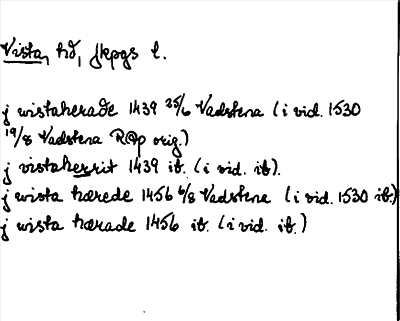 Vista, hd, Jkpgs l.
j wistaherade 1439 25/6 Vadstena (i vid. 1530
19/8 Vadstena RAp orig.)
j vistaherrit 1439 ib. (i vid. ib).
j wista hærede 1456 6/8 Vadstena (i vid. 1530 ib.)
j wista hærade 1456 ib. (i vid. ib.)